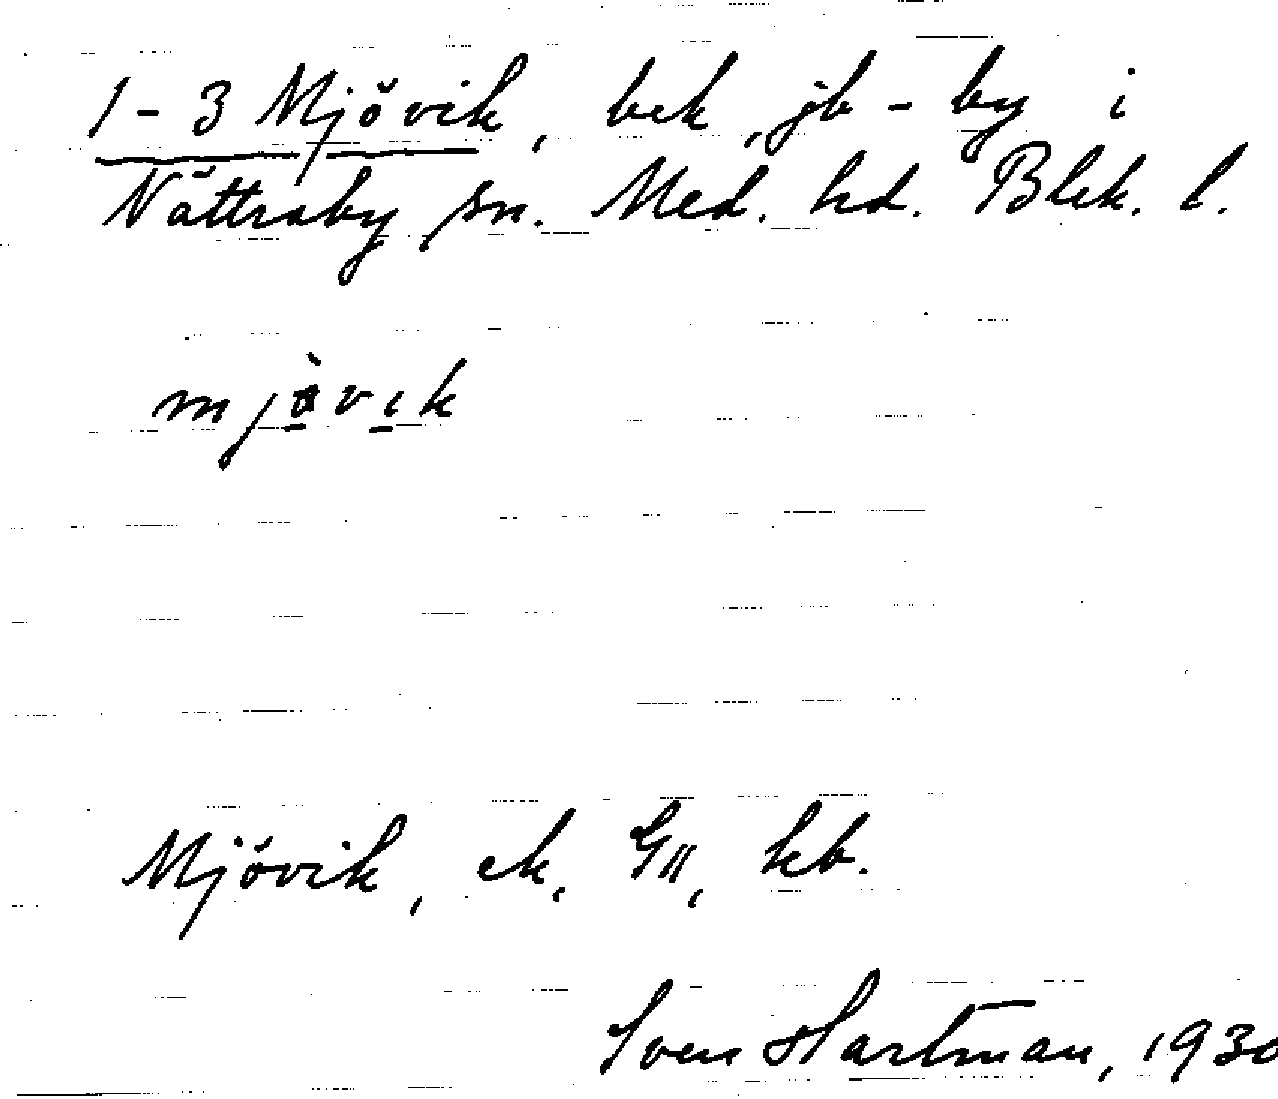 1-3 Mjövik, bek, jb-by i
Nättraby sn. Med. hd. Blek. l.
Mjövik, ek, GII, kb.
Sven Hartman, 1930